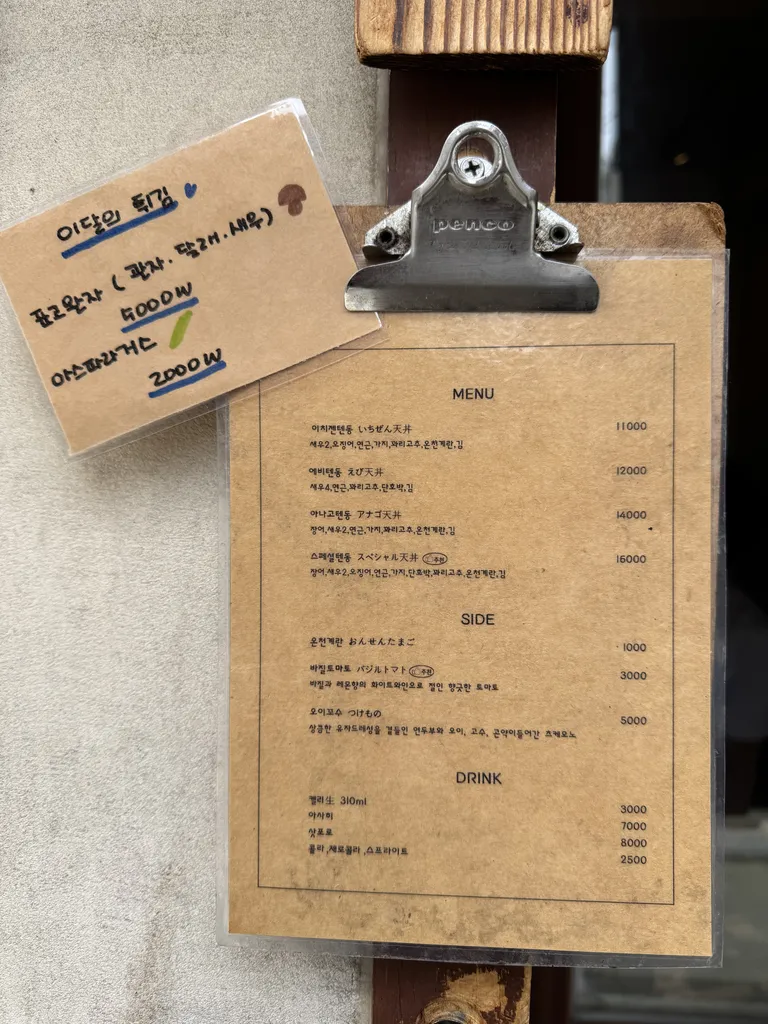 이달의 튀김
표고완자 (관자.달래.새우)
5000W
아스파라거스
2000W
penco
MENU
이치젠텐동 いちぜん天丼 11000
새우2,오징어,연근,가지,꽈리고추,온천계란,김
에비텐동 えび天丼 12000
새우4,연근,꽈리고추,단호박,김
아나고텐동 アナゴ天丼 14000
장어,새우2,연근,가지,꽈리고추,온천계란,김
스페셜텐동 スペシャル天丼 추천 16000
장어,새우2,오징어,연근,가지,단호박,꽈리고추,온천계란,김
SIDE
온천계란 おんせんたまご 1000
바질토마토 バジルトマト 추천 3000
바질과 레몬향의 화이트와인으로 절인 향긋한 토마토
오이꼬수 つけもの 5000
상큼한 유자드레싱을 곁들인 연두부와 오이, 고수, 곤약이들어간 츠케모노
DRINK
켈리生 310ml 3000
아사히 7000
삿포로 8000
콜라,제로콜라,스프라이트 2500